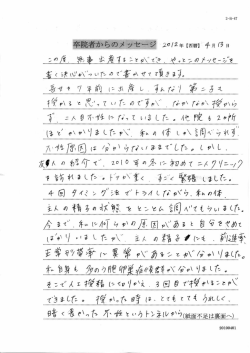 卒院者からのメッセージ 2012年【初診】4月13日
この度、無事出産することができ、やっとこのメッセージを
書く決心がついたので書かせて頂きます。
長女は7年前に出産し、すんなり第二子も
授かると思っていたのですが なかなか授から
ず、二人目不妊になっていました。他院も2カ所
ほどかかりましたが、私の体しか調べられず
不妊原因は分からないままでした。しかし、
友人の紹介で、2010年の冬に初めて二人クリニック
を訪れました。ドアが重く、すごく緊張しました。
4回タイミング法でトライしながら、私の体、
主人の精子の状態をとことん調べてもらいました。
今まで、私に何らかの原因があると自分をせめて
ばかりいましたが 主人の精子にも、前進率、
正常形態率に異常があることが分かりました。
私自身も多のう胞卵巣症候群が分かりました。
そこで人工授精に切りかえ、3回目で授かることが
できました。授かった時は、とてもとても嬉しく、
暗く長かった不妊というトンネルから
(紙面不足は裏面へ)